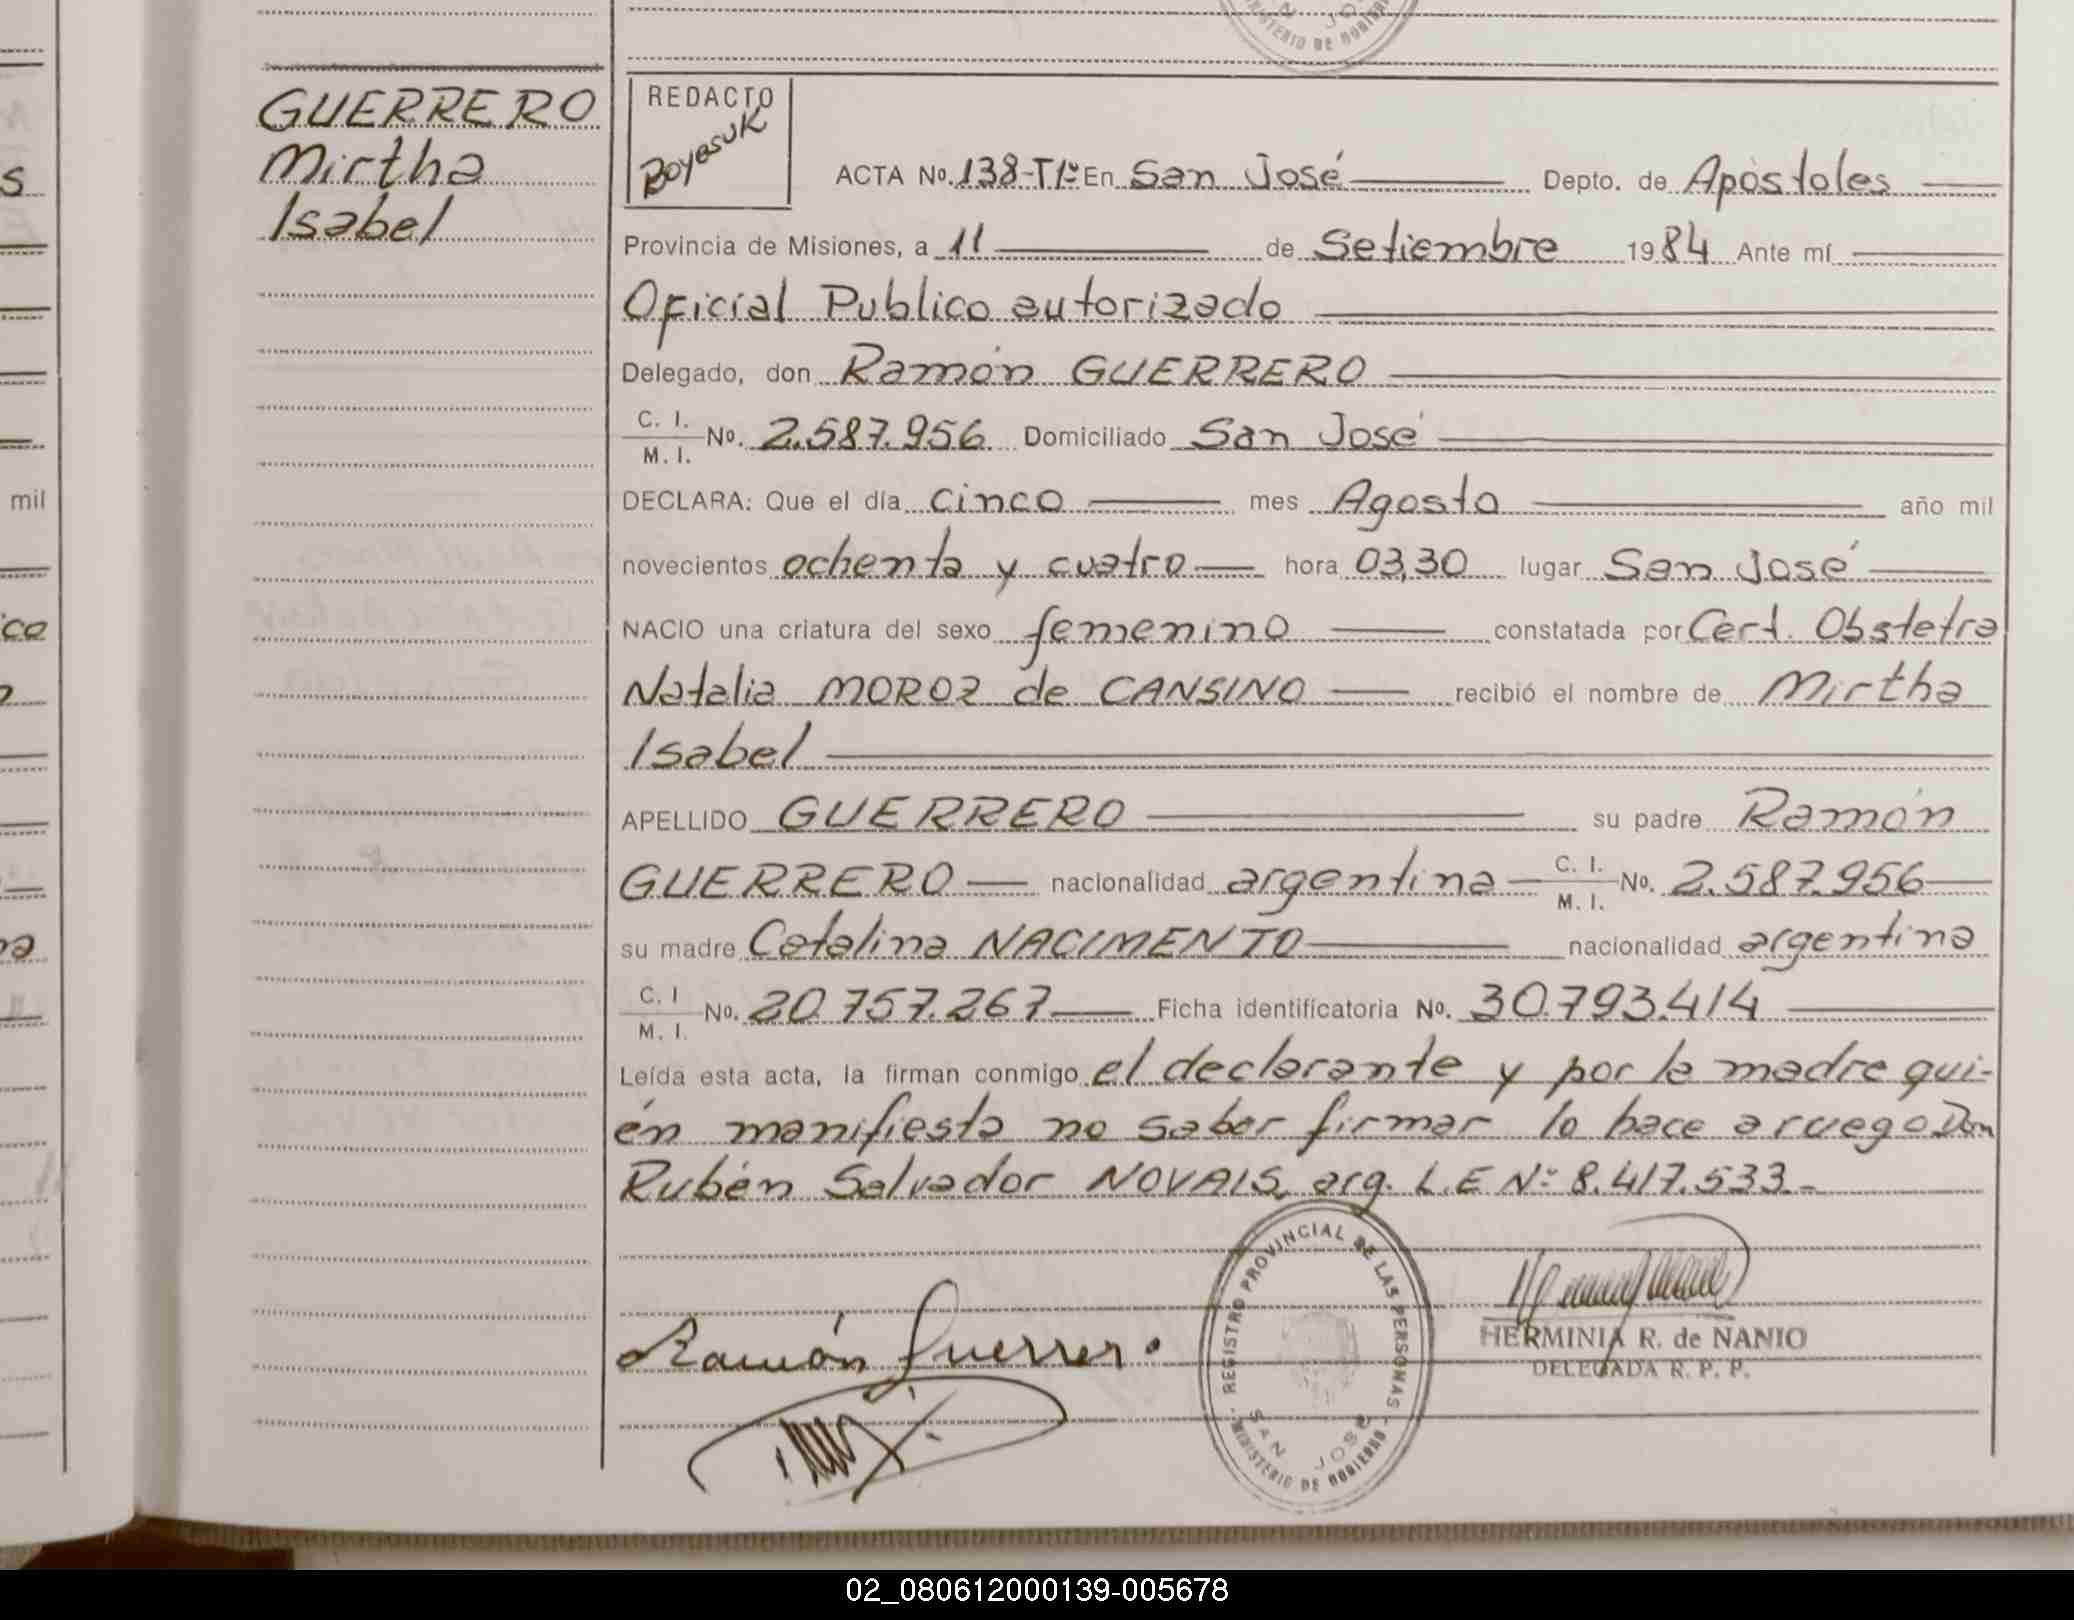 GUERRERO
Mirtha
Isabel
REDACTO
Boyasuk
ACTA No. 138-T1º En San José Depto. de Apóstoles
Provincia de Misiones, a 11 de Setiembre 1984 Ante mí
Oficial Publico autorizado
Delegado, don Ramón GUERRERO
C. I. M. I. No. 2.587.956 Domiciliado San José
DECLARA: Que el día cinco mes Agosto año mil
novecientos ochenta y cuatro hora 03,30 lugar San José
NACIO una criatura del sexo femenino constatada por Cert. Obstetra
Natalia MOROZ de CANSINO recibió el nombre de Mirtha
Isabel
APELLIDO GUERRERO su padre Ramón
GUERRERO nacionalidad argentina C. I. M. I. No. 2.587.956
su madre Catalina NACIMENTO nacionalidad argentina
C. I M. I. No. 20.757.267 Ficha identificatoria No. 30.793.414
Leída esta acta, la firman conmigo el declarante y por la madre qui-
én manifiesta no saber firmar lo hace a ruego Don
Rubén Salvador NOVAIS, arg. L.E Nº 8.417.533.-
Ramón Guerrero
REGISTRO PROVINCIAL DE LAS PERSONAS
SAN JOSE
MINISTERIO DE GOBIERNO
HERMINIA R. de NANIO
DELEGADA R. P. P.
mil
02_080612000139-005678